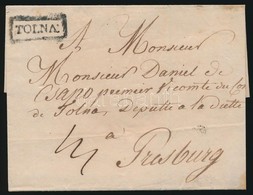 TOLNA
A Monsieur
Monsieur Daniel de
Csapo premier Vicomte du Com
de Tolna, Deputé a la diette
à
Presburg